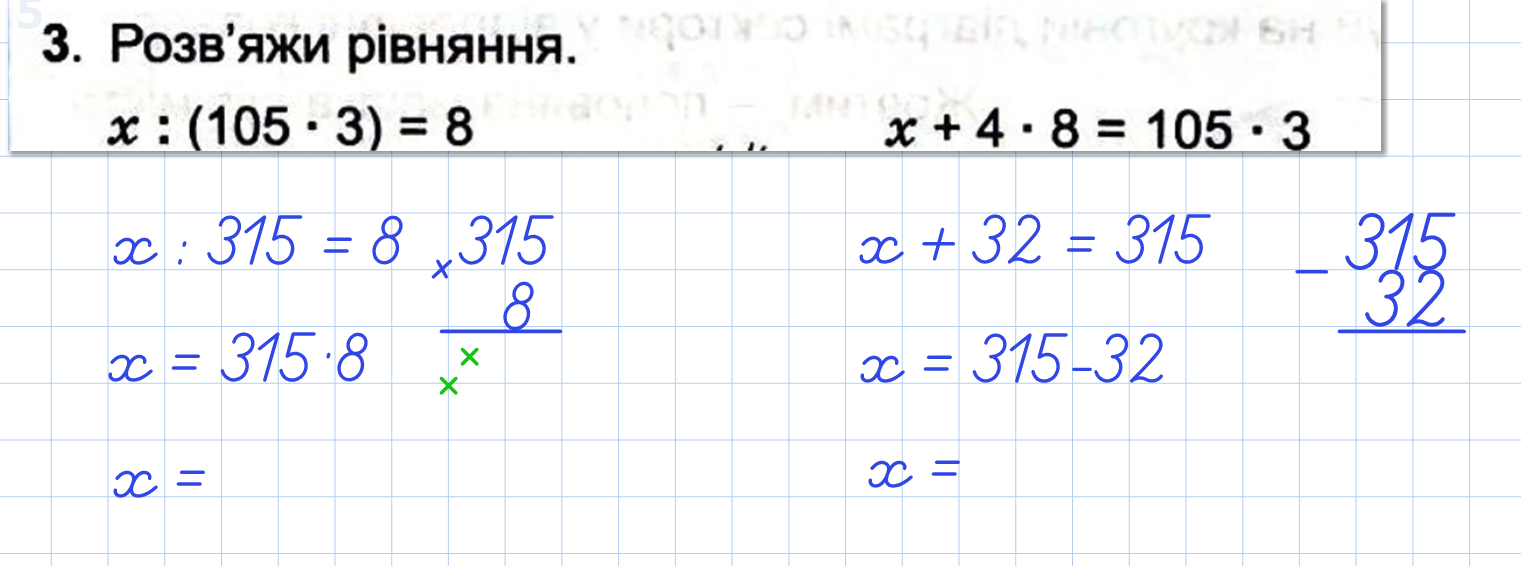 3. Розв'яжи рівняння.
x : (105 · 3) = 8
x + 4 · 8 = 105 · 3
x : 315 = 8
× 315
8
x = 315·8
× ×
x =
x + 32 = 315
– 315
32
x = 315-32
x =